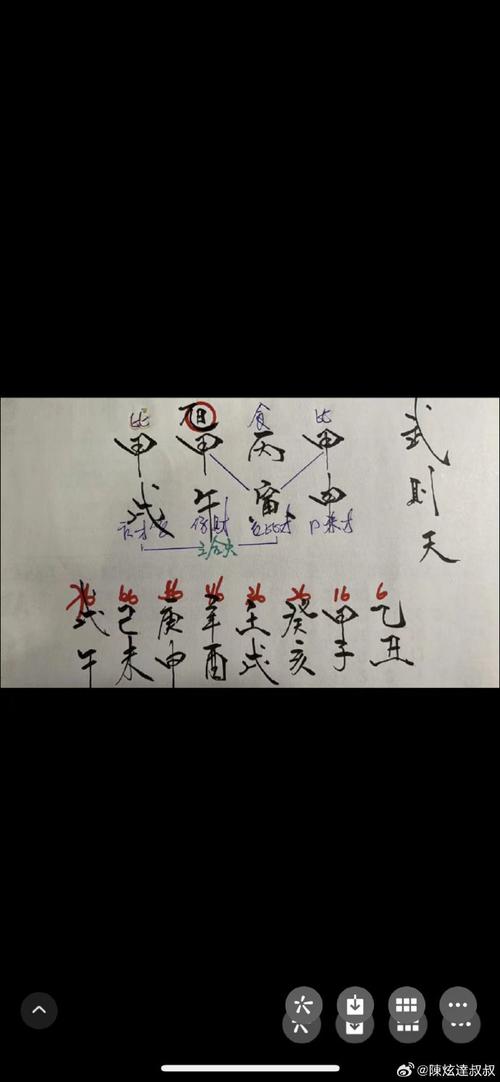 武则天
比 日 食 比
甲 甲 丙 甲
戌 午 寅 申
三合火
76 66 56 46 36 26 16 6
戊 己 庚 辛 壬 癸 甲 乙
午 未 申 酉 戌 亥 子 丑
@陳炫達叔叔